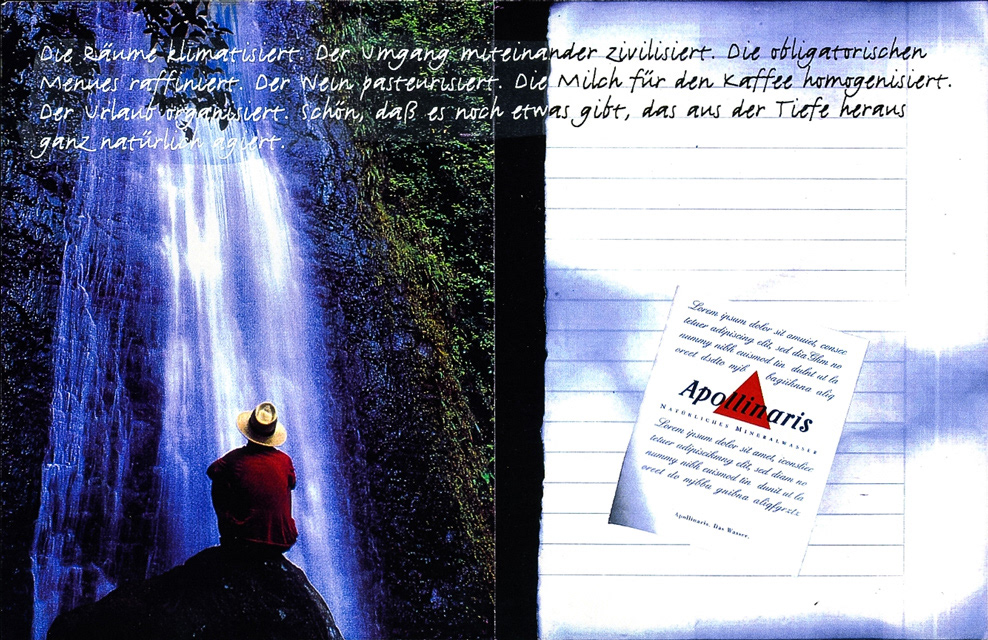 Die Räume klimatisiert. Der Umgang miteinander zivilisiert. Die obligatorischen
Menues raffiniert. Der Wein pasteurisiert. Die Milch für den Kaffee homogenisiert.
Der Urlaub organisiert. Schön, daß es noch etwas gibt, das aus der Tiefe heraus
ganz natürlich agiert.
Lorem ipsum dolor sit amuiet, consec
tetuer adipiscing elit, sed dia Ghm no
nummy nibh euismod tin dulnt ut la
oreet dsdte mjb bagiikuna aliq
Apollinaris
NATÜRLICHES MINERALWASSER
Lorem ipsum dolor sit amet, iconsliec
tetuer adipiscikmng elit, sed diam no
nummy nibh euismod tin dunit ut la
oreet do mjbbu gnibna aliqfgrztz
Apollinaris. Das Wasser.